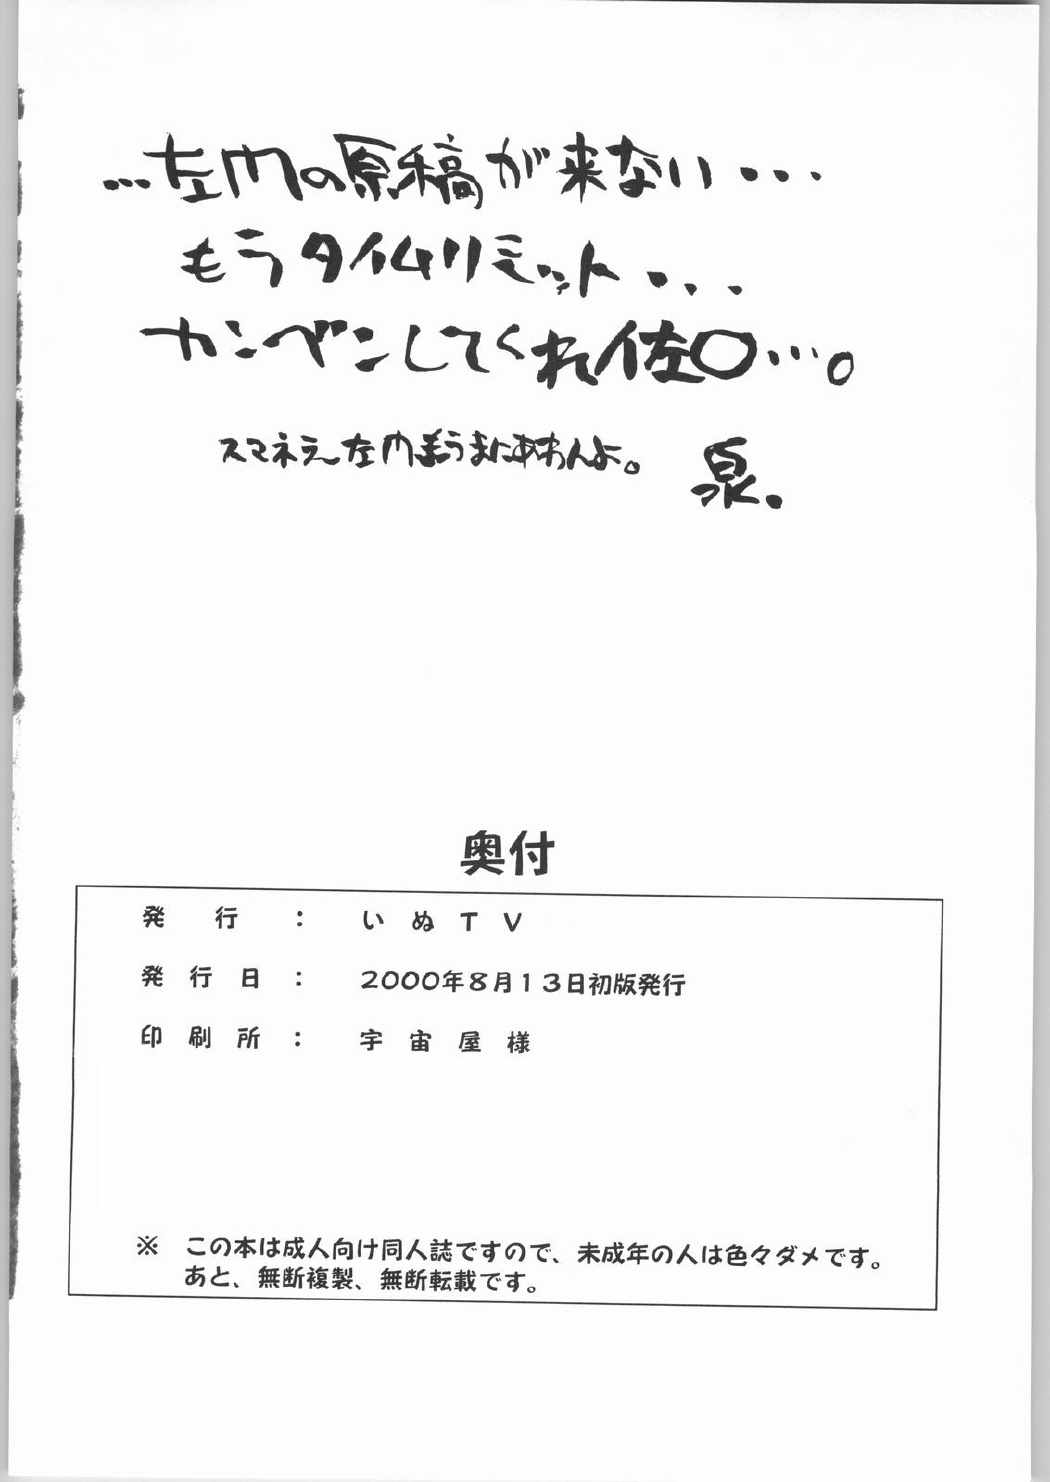 …左内の原稿が来ない・・・
もうタイムリミット・・・
カンベンしてくれ佐〇…。
スマネェ〜左内もうまにあわんよ。
泉.
奥付
発行：いぬTV
発行日：2000年8月13日初版発行
印刷所：宇宙屋様
※ この本は成人向け同人誌ですので、未成年の人は色々ダメです。
あと、無断複製、無断転載です。